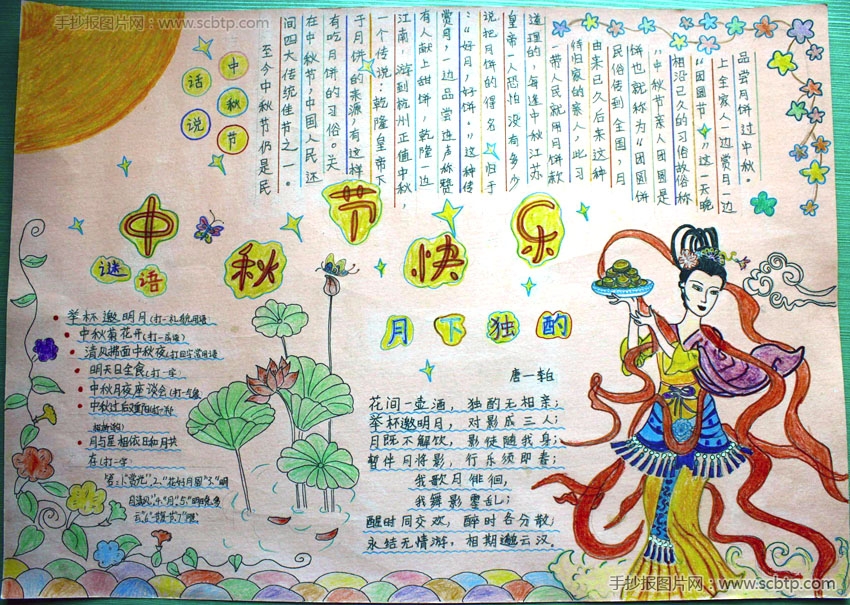 手抄报图片网：www.scbtp.com
中秋节
话说
至今中秋节仍是民
间四大传统佳节之一。
在中秋节,中国人民还
有吃月饼的习俗。关
于月饼的来源,有这样
一个传说:乾隆皇帝下
江南,游到杭州正值中秋,
有人献上甜饼,乾隆一边
赏月,一边品尝连声称赞
:“好月,好饼。”这种传
说把月饼的得名归于
皇帝一人恐怕没有多少
道理的,每逢中秋江苏
一带人民就用月饼款
待归家的亲人,此习
由来已久后来这种
民俗传到全国,月
饼也就称为“团圆饼
”中秋节亲人团圆是
相沿已久的习俗故俗称
“团圆节”这一天晚
上全家人一边赏月一边
品尝月饼过中秋。
中秋节快乐
谜语
举杯邀明月(打一礼貌用语
中秋菊花开(打一成语)
清风拂面中秋夜(打四字常用语
明天日全食(打一字)
中秋月夜座谈会(打一
中秋过后又重阳(打一
月与星相依日和月共
存(打一字)
2、“花好月圆”3、“明
月清风”4、“月”5、“
月下独酌
唐一李白
花间一壶酒，独酌无相亲；
举杯邀明月，对影成三人；
月既不解饮，影徒随我身；
暂伴月将影，行乐须即春；
我歌月徘徊，
我舞影零乱；
醒时同交欢，醉时各分散；
永结无情游，相期邈云汉。
手抄报图片网：www.scbtp.com